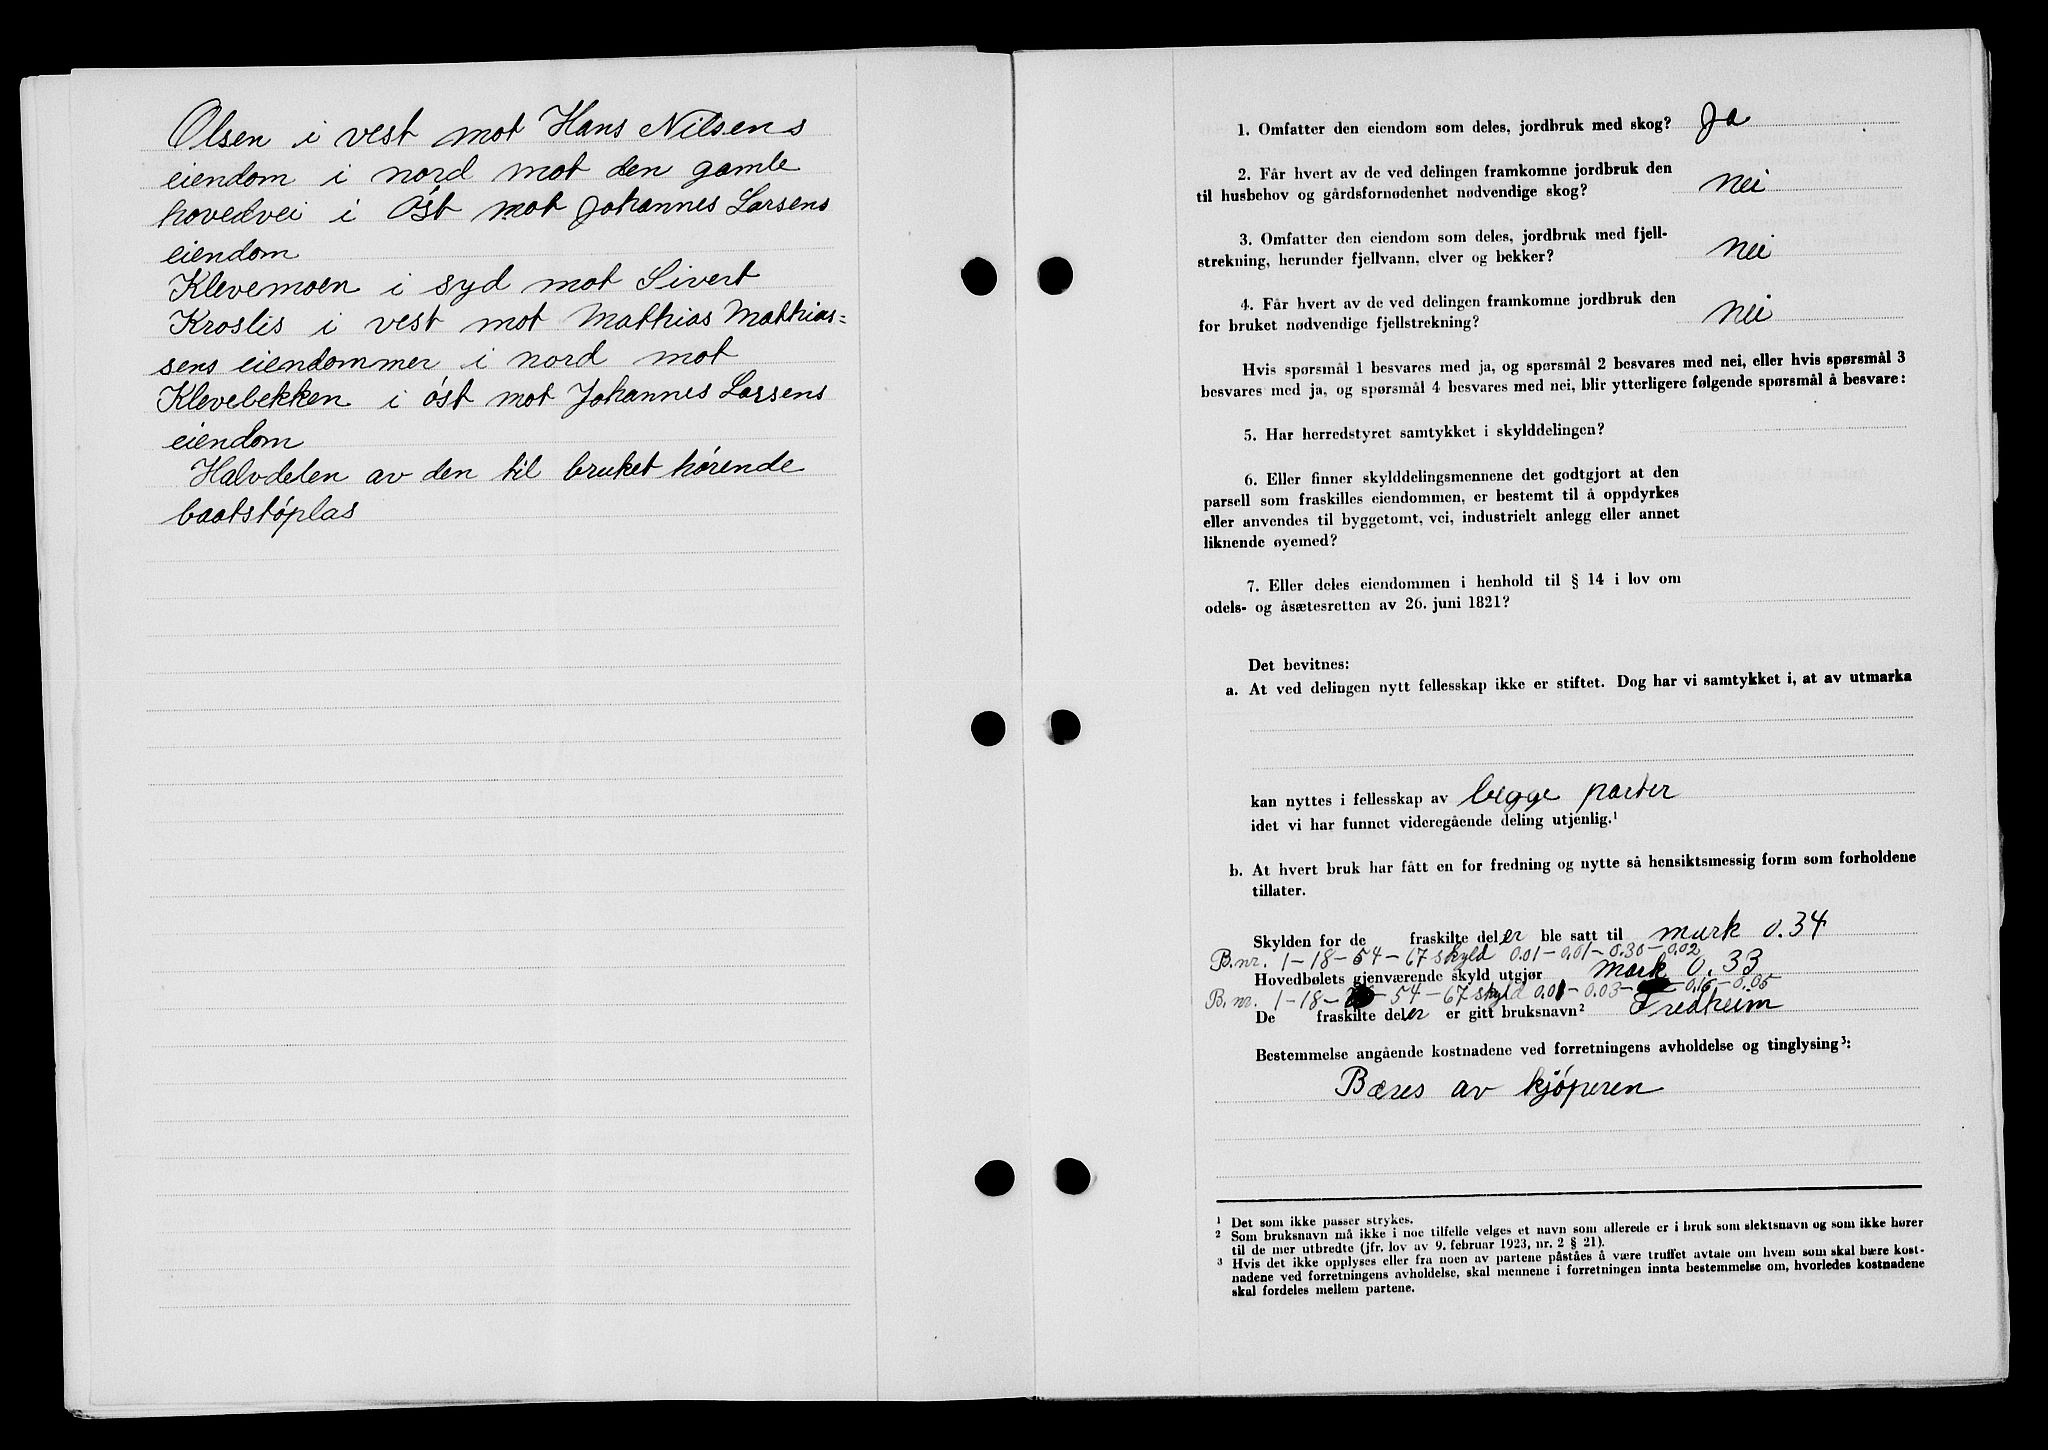 Olsen i vest mot Hans Nilsens
eiendom i nord mot den gamle
hovedvei i Óst mot Johannes Larsens
eiendom
Klevemoen i syd mot Sivert
Kroslis i vest mot Mathias Mathias=
sens eiendommer i nord mot
Klevebekken i óst mot Johannes Larsens
eiendom
Halvdelen av den til bruket hórende
baatstóplas
1. Omfatter den eiendom som deles, jordbruk med skog? Ja
2. Får hvert av de ved delingen framkomne jordbruk den
til husbehov og gårdsfornødenhet nødvendige skog? Nei
3. Omfatter den eiendom som deles, jordbruk med fjell-
strekning, herunder fjellvann, elver og bekker? Nei
4. Får hvert av de ved delingen framkomne jordbruk den
for bruket nødvendige fjellstrekning? Nei
Hvis spørsmål 1 besvares med ja, og spørsmål 2 besvares med nei, eller hvis spørsmål 3
besvares med ja, og spørsmål 4 besvares med nei, blir ytterligere følgende spørsmål å besvare:
5. Har herredstyret samtykket i skylddelingen?
6. Eller finner skylddelingsmennene det godtgjort at den
parsell som fraskilles eiendommen, er bestemt til å oppdyrkes
eller anvendes til byggetomt, vei, industrielt anlegg eller annet
liknende øyemed?
7. Eller deles eiendommen i henhold til § 14 i lov om
odels- og åsætesretten av 26. juni 1821?
Det bevitnes:
a. At ved delingen nytt fellesskap ikke er stiftet. Dog har vi samtykket i, at av utmarka
kan nyttes i fellesskap av begge parter
idet vi har funnet videregående deling utjenlig.¹
b. At hvert bruk har fått en for fredning og nytte så hensiktsmessig form som forholdene
tillater.
Skylden for de fraskilte deler ble satt til mark 0.34
B.nr. 1-18-54-67 skyld 0.01-0.01-0.30-0.02
Hovedbølets gjenværende skyld utgjør mark 0.33
B.nr. 1-18- -54-67 skyld 0.01-0.03- -0.16-0.05
De fraskilte deler er gitt bruksnavn² Fredheim
Bestemmelse angående kostnadene ved forretningens avholdelse og tinglysing³:
Bæres av kjóperen
¹ Det som ikke passer strykes.
² Som bruksnavn må ikke i noe tilfelle velges et navn som allerede er i bruk som slektsnavn og som ikke hører
til de mer utbredte (jfr. lov av 9. februar 1923, nr. 2 § 21).
³ Hvis det ikke opplyses eller fra noen av partene påståes å være truffet avtale om hvem som skal bære kost-
nadene ved forretningens avholdelse, skal mennene i forretningen innta bestemmelse om, hvorledes kostnadene
skal fordeles mellem partene.